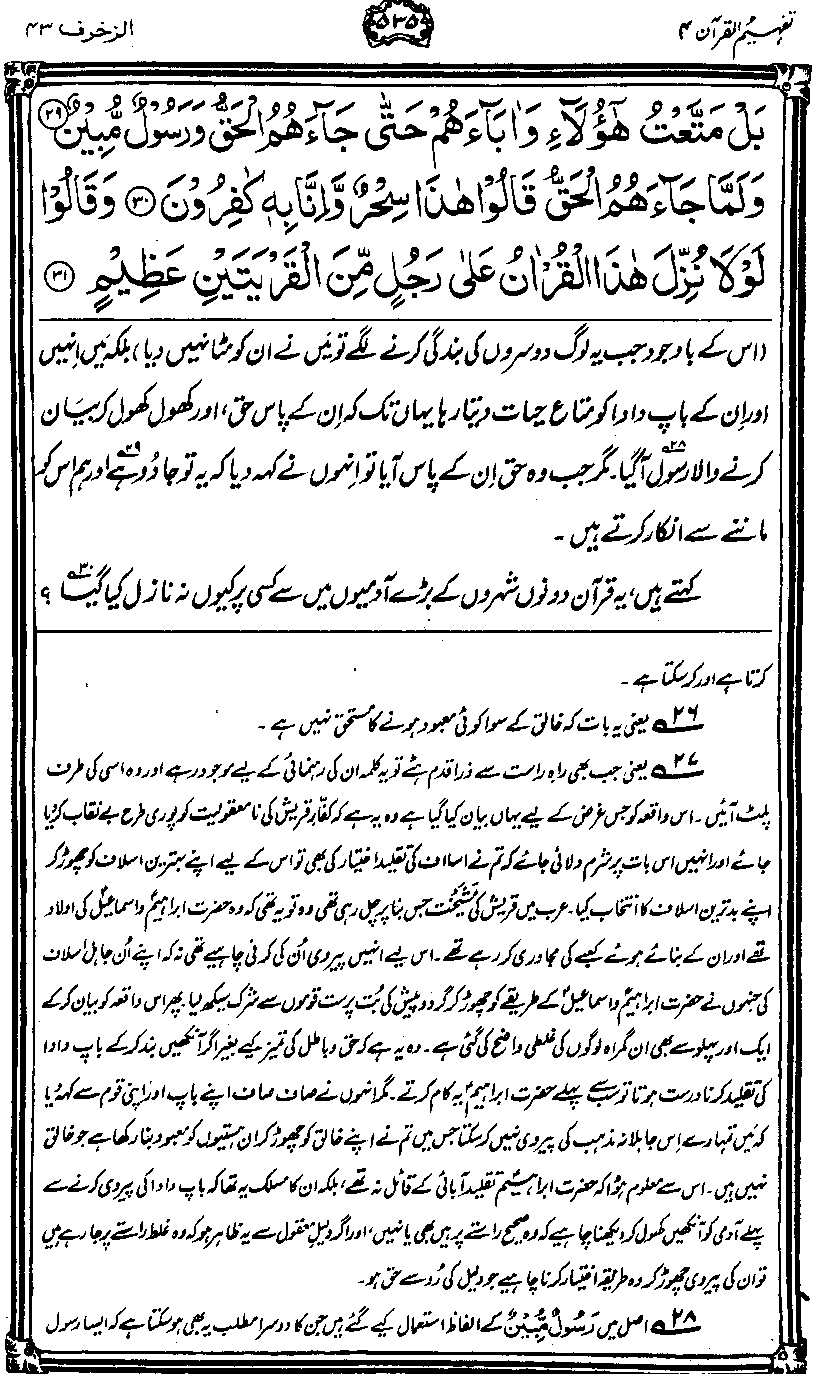 تفہیم القرآن ۴
۵۳۵
الزخرف ۴۳
بَلْ مَتَّعْتُ هٰٓؤُلَآءِ وَاٰبَآءَهُمْ حَتّٰى جَآءَهُمُ الْحَقُّ وَرَسُوْلٌ مُّبِيْنٌ ۲۹
وَلَمَّا جَآءَهُمُ الْحَقُّ قَالُوْا هٰذَا سِحْرٌ وَّاِنَّا بِهٖ كٰفِرُوْنَ ۳۰ وَقَالُوْا
لَوْلَا نُزِّلَ هٰذَا الْقُرْاٰنُ عَلٰى رَجُلٍ مِّنَ الْقَرْيَتَيْنِ عَظِيْمٍ ۳۱
(اس کے باوجود جب یہ لوگ دوسروں کی بندگی کرنے لگے تو میں نے ان کو مٹا نہیں دیا) بلکہ میں اِنہیں
اور اِن کے باپ دادا کو متاعِ حیات دیتا رہا یہاں تک کہ اِن کے پاس حق، اور کھول کھول کر بیان
کرنے والا رسول آگیا۲۸۔ مگر جب وہ حق اِن کے پاس آیا تو اِنہوں نے کہہ دیا کہ یہ تو جادُو ہے۲۹ اور ہم اس کو
ماننے سے انکار کرتے ہیں۔
کہتے ہیں، یہ قرآن دونوں شہروں کے بڑے آدمیوں میں سے کسی پر کیوں نہ نازل کیا گیا۳۰؟
کرتا ہے اور کر سکتا ہے۔
۲۶ یعنی یہ بات کہ خالق کے سوا کوئی معبود ہونے کا مستحق نہیں ہے۔
۲۷ یعنی جب بھی راہِ راست سے ذرا قدم ہٹے تو یہ کلمہ ان کی رہنمائی کے لیے موجود رہے اور وہ اسی کی طرف
پلٹ آئیں۔ اس واقعہ کو جس غرض کے لیے یہاں بیان کیا گیا ہے وہ یہ ہے کہ کفارِ قریش کی نامعقولیت کو پوری طرح بے نقاب کر دیا
جائے اور انہیں اس بات پر شرم دلائی جائے کہ تم نے اسلاف کی تقلید اختیار کی بھی تو اس کے لیے اپنے بہترین اسلاف کو چھوڑ کر
اپنے بدترین اسلاف کا انتخاب کیا۔ عرب میں قریش کی مشیخت جس بنا پر چل رہی تھی وہ تو یہ تھی کہ وہ حضرت ابراہیمؑ و اسماعیلؑ کی اولاد
تھے اور ان کے بنائے ہوئے کعبے کی مجاوری کر رہے تھے۔ اس لیے انہیں پیروی اُن کی کرنی چاہیے تھی نہ کہ اپنے اُن جاہل اسلاف
کی جنہوں نے حضرت ابراہیمؑ و اسماعیلؑ کے طریقے کو چھوڑ کر گرد و پیش کی بُت پرست قوموں سے شرک سیکھ لیا۔ پھر اس واقعہ کو بیان کر کے
ایک اور پہلو سے بھی ان گمراہ لوگوں کی غلطی واضح کی گئی ہے۔ وہ یہ ہے کہ حق و باطل کی تمیز کیے بغیر اگر آنکھیں بند کر کے باپ دادا
کی تقلید کرنا درست ہوتا تو سب سے پہلے حضرت ابراہیمؑ یہ کام کرتے۔ مگر انہوں نے صاف صاف اپنے باپ اور اپنی قوم سے کہہ دیا
کہ میں تمہارے اِس جاہلانہ مذہب کی پیروی نہیں کر سکتا جس میں تم نے اپنے خالق کو چھوڑ کر ان ہستیوں کو معبود بنا رکھا ہے جو خالق
نہیں ہیں۔ اس سے معلوم ہوا کہ حضرت ابراہیمؑ تقلیدِ آبائی کے قائل نہ تھے، بلکہ ان کا مسلک یہ تھا کہ باپ دادا کی پیروی کرنے سے
پہلے آدمی کو آنکھیں کھول کر دیکھنا چاہیے کہ وہ صحیح راستے پر ہیں بھی یا نہیں، اور اگر دلیلِ معقول سے یہ ظاہر ہو کہ وہ غلط راستے پر جا رہے ہیں
تو ان کی پیروی چھوڑ کر وہ طریقہ اختیار کرنا چاہیے جو دلیل کی رُو سے حق ہو۔
۲۸ اصل میں رَسُوْلٌ مُّبِيْنٌ کے الفاظ استعمال کیے گئے ہیں جن کا دوسرا مطلب یہ بھی ہو سکتا ہے کہ ایسا رسول